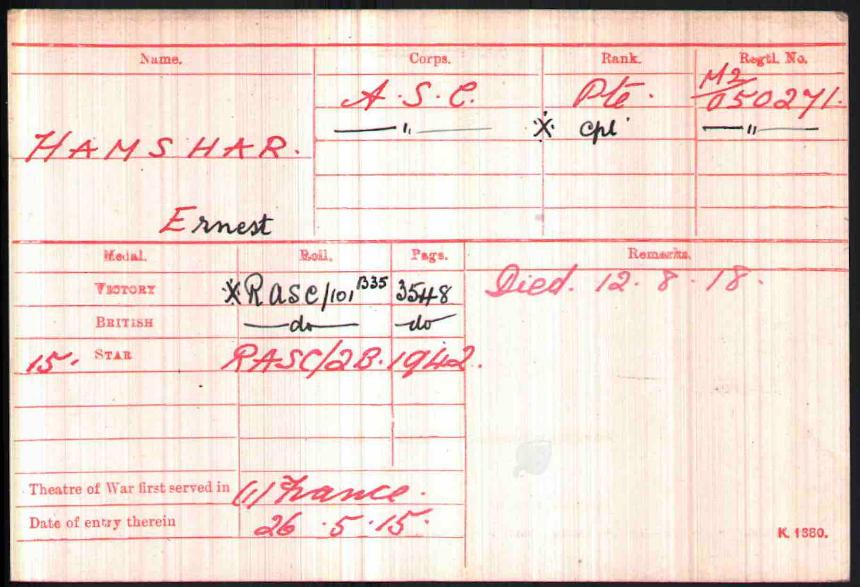 Name. Corps. Rank. Regtl. No.
A.S.C. Pte. M2/050271.
—"— * cpl —"—
HAMSHAR.
Ernest
Medal. Roll. Page. Remarks.
VICTORY *RASC/101B35 3548 Died. 12.8.18.
BRITISH —do— do
15. STAR RASC/2B. 1942.
Theatre of War first served in (1) France.
Date of entry therein 26.5.15.
K. 1380.